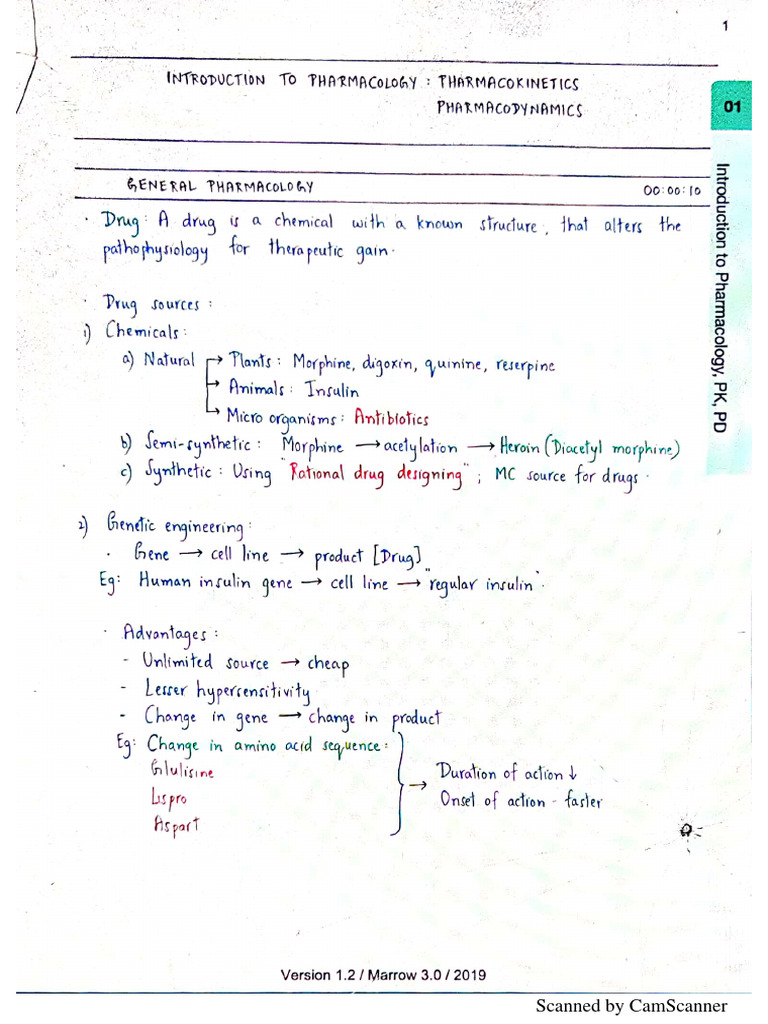 1
INTRODUCTION TO PHARMACOLOGY : PHARMACOKINETICS
PHARMACODYNAMICS
01
Introduction to Pharmacology, PK, PD
GENERAL PHARMACOLOGY 00:00:10
· Drug : A drug is a chemical with a known structure, that alters the
pathophysiology for therapeutic gain.
· Drug sources :
1) Chemicals :
a) Natural → Plants : Morphine, digoxin, quinine, reserpine
→ Animals : Insulin
→ Micro organisms : Antibiotics
b) Semi-synthetic : Morphine → acetylation → Heroin (Diacetyl morphine)
c) Synthetic : Using "Rational drug designing" ; MC source for drugs .
2) Genetic engineering :
· Gene → cell line → product [Drug]
Eg: Human insulin gene → cell line → regular insulin".
· Advantages :
- Unlimited source → cheap
- Lesser hypersensitivity
- Change in gene → change in product
Eg: Change in amino acid sequence :
Glulisine
Lispro
Aspart
→ Duration of action ↓
Onset of action - faster
Version 1.2 / Marrow 3.0 / 2019
Scanned by CamScanner